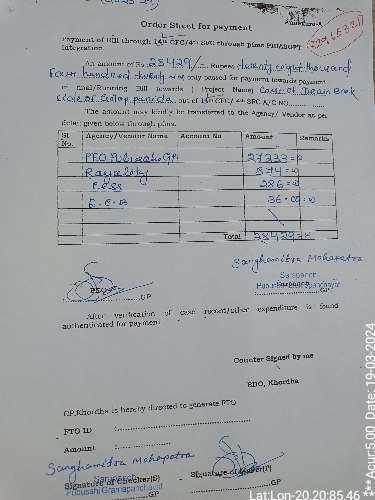 Order Sheet for payment
Annexure-A
Payment of Bill through 15th CFC/4th SFC through pfms PRIASOFT
Integration.
An amount of Rs. 28429/- Rupees twenty eight thousand
Four hundred twenty nine only passed for payment towards payment
of final/Running Bill towards ( Project Name) Const. of Drain
side of panida out of 15th CFC/4th SFC A/C NO
The amount may kindly be transferred to the Agency/ Vendor as per
detail given below through pfms.
Sl No. Agency/Vendor Name Account No Amount Remarks
PEO Pubusahi GP 27233=00
Rayality 874=00
Cess 286=00
36=00
Total 28429=00
Sanghamitra Mohapatra
Sarpanch
Pubusahi Gramapanchayat
PEO
GP
GP
After verification of case record/other expenditure is found
authenticated for payment
Counter Signed by me
BDO, Khordha
GP,Khordha is hereby directed to generate FTO
FTO ID :
Amount :
Sanghamitra Mohapatra
Signature of Checker(S)
Sarpanch
Pubusahi Gramapanchayat
GP
Signature of Maker(P)
GP
Lat:Lon-20.20:85.46
***Acur:5.00 Date:19-03-2024